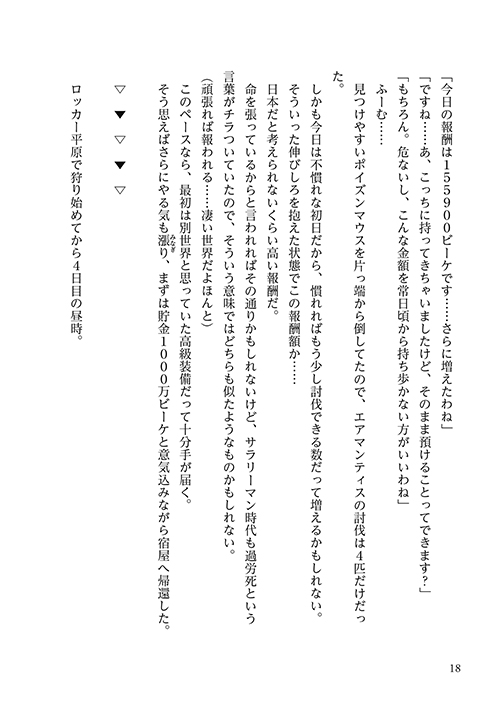 「今日の報酬は１５５９００ビーケです……さらに増えたわね」
「ですね……あ、こっちに持ってきちゃいましたけど、そのまま預けることってできます？」
「もちろん。危ないし、こんな金額を常日頃から持ち歩かない方がいいわね」
ふーむ……
見つけやすいポイズンマウスを片っ端から倒してたので、エアマンティスの討伐は４匹だけだっ
た。
しかも今日は不慣れな初日だから、慣れればもう少し討伐できる数だって増えるかもしれない。
そういった伸びしろを抱えた状態でこの報酬額か……
日本だと考えられないくらい高い報酬だ。
命を張っているからと言われればその通りかもしれないけど、サラリーマン時代も過労死という
言葉がチラついていたので、そういう意味ではどちらも似たようなものかもしれない。
（頑張れば報われる……凄い世界だよほんと）
このペースなら、最初は別世界と思っていた高級装備だって十分手が届く。
そう思えばさらにやる気も漲り、まずは貯金１０００万ビーケと意気込みながら宿屋へ帰還した。
みなぎ
▽　▼　▽　▼　▽
ロッカー平原で狩り始めてから４日目の昼時。
18